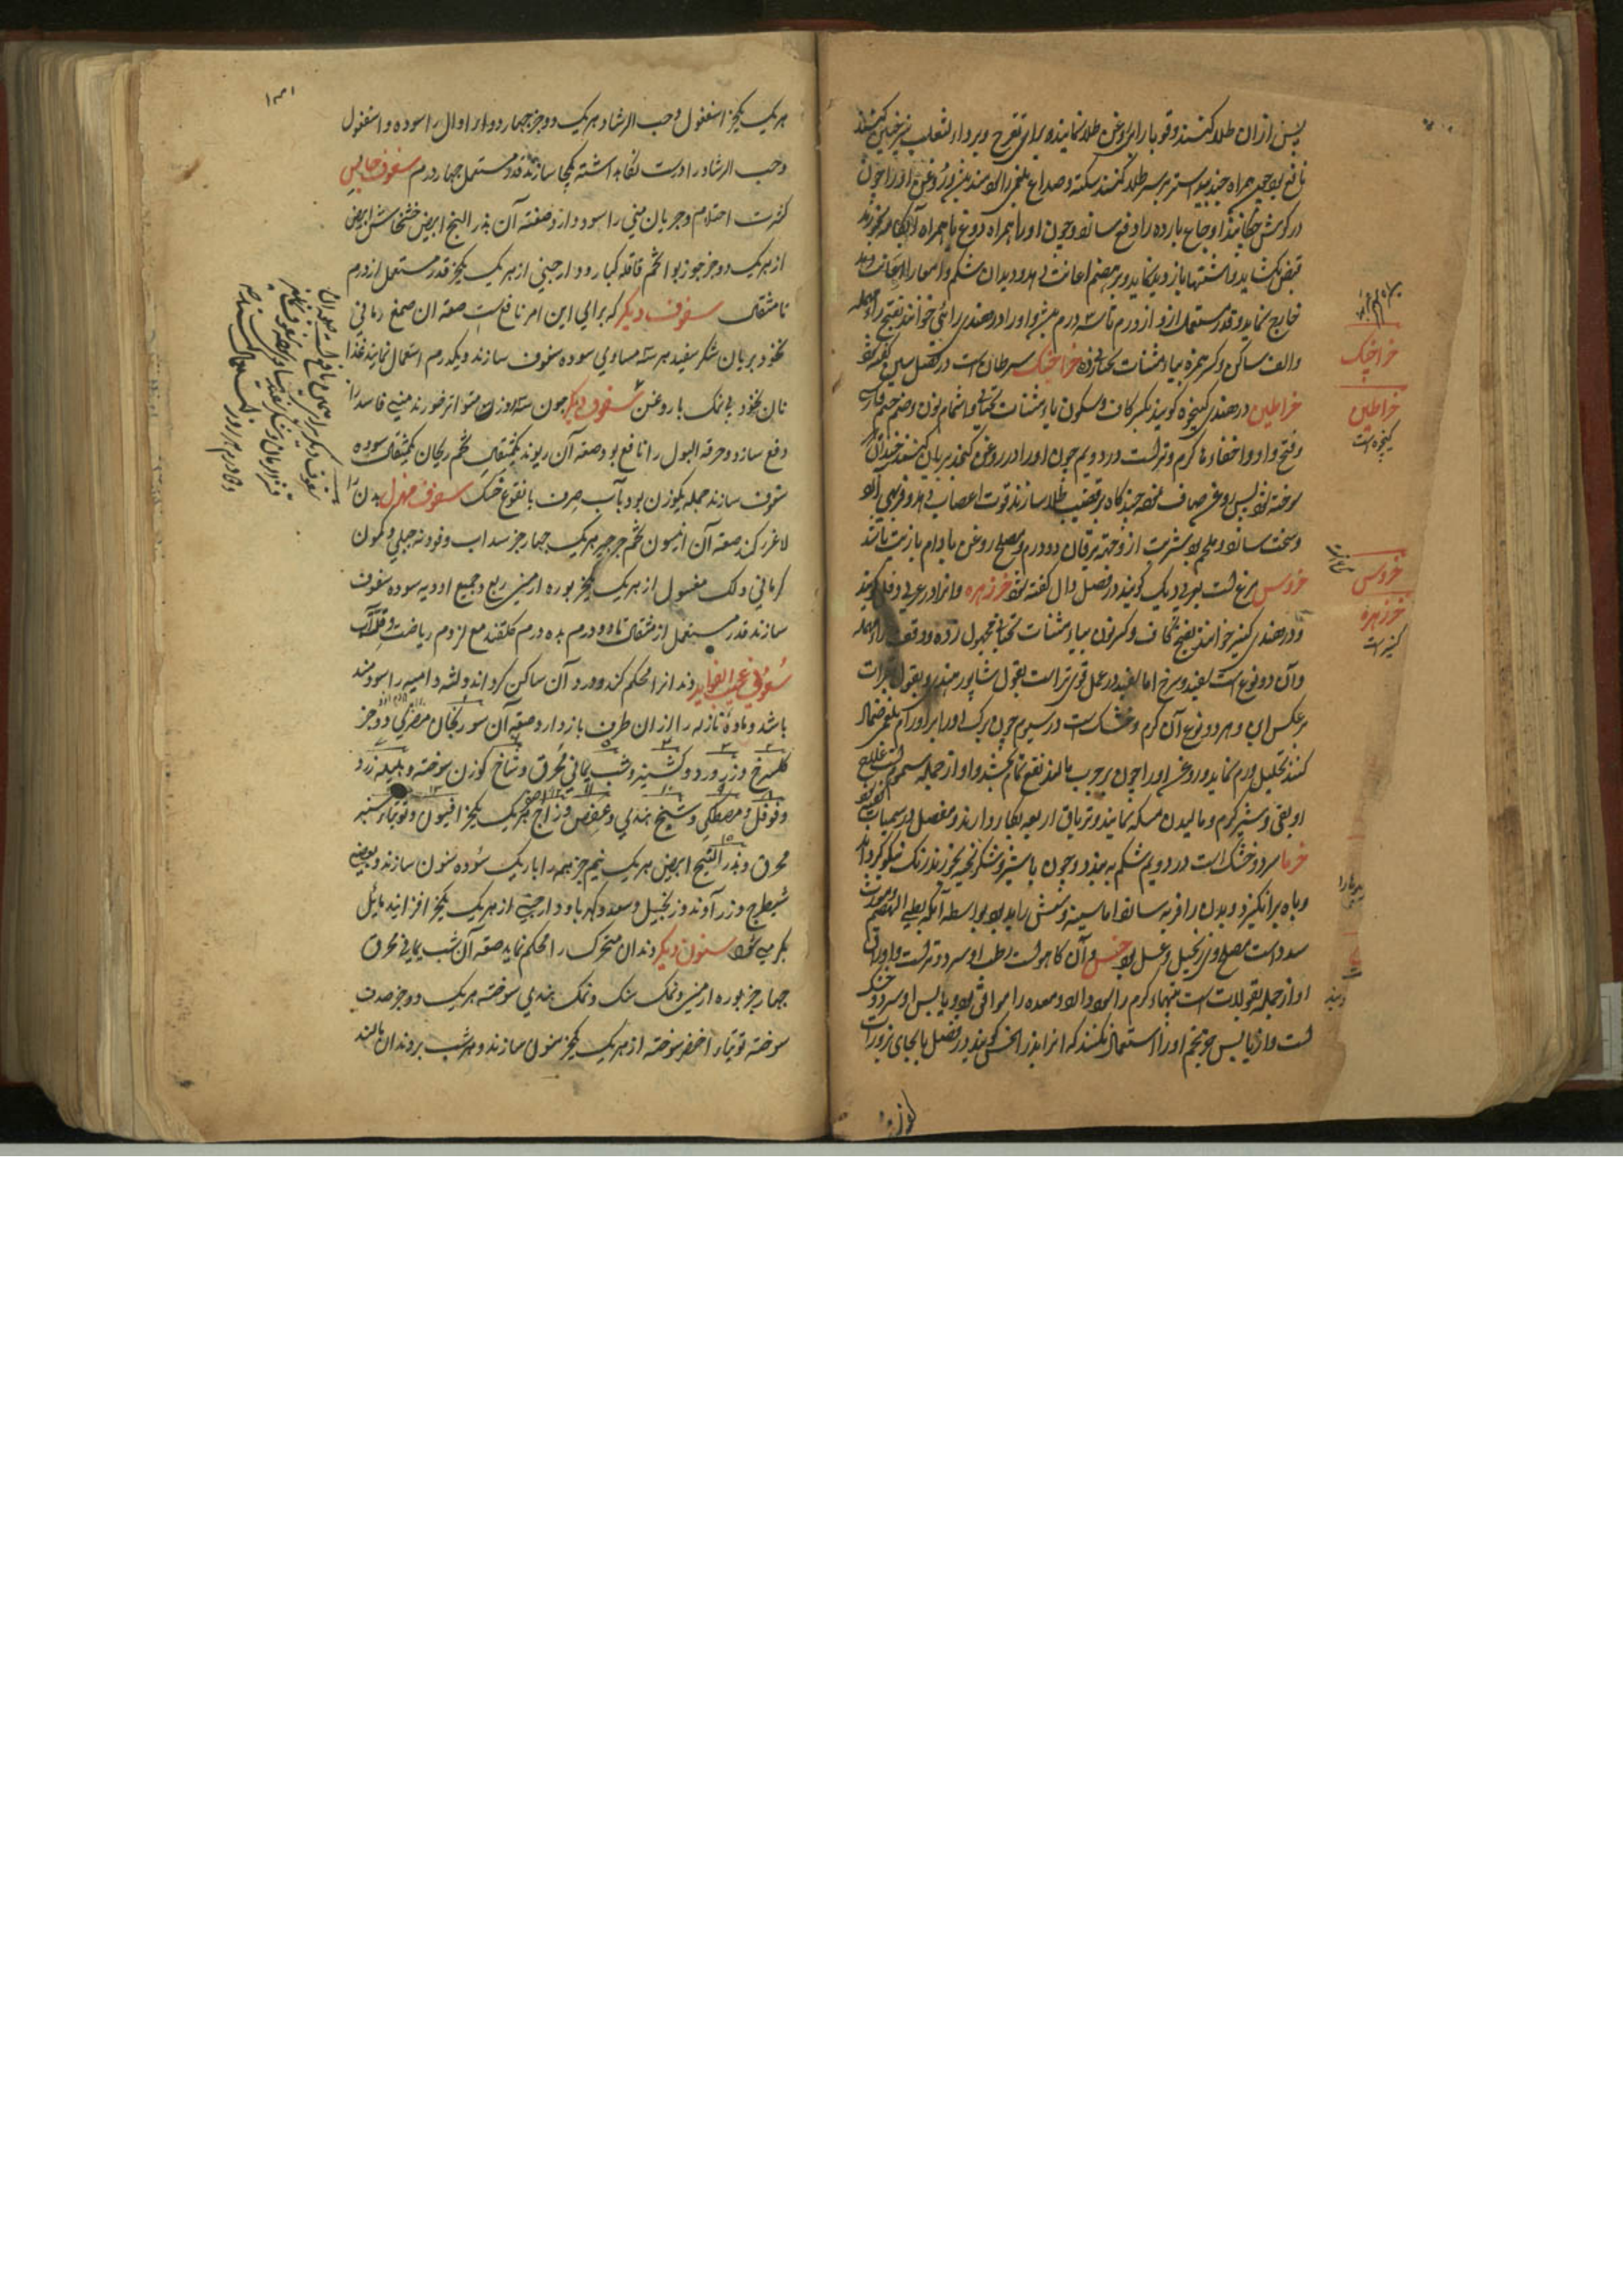 پس ازان طلا کنند و قوبا را با روغن طلا نمایند و برای تقرح و برداء الثعلب نیز چنین کنند
نافع بود چون همراه جندبیدستر بر سر طلا کنند سکته و صداع بلغمی را سودمند بود و روغن او را چون
در گوش چکانند اوجاع بارده را دفع ساند و چون او را همراه دوغ یا همراه آبکامه بخورند
قبض بکشاید و اشتها باز دید نماید و بر هضم اعانت دهد و دیدان شکم و امعا را
خارج نماید و قدر مستعمل ازو از درم تا سه درم بود و او را در هندی رائی خوانند بفتح راء مهمله
والف ساکن و کسر همزه و یاء مثنات تحتانی زده خراچنک سرطان است در فصل سین گفته شود
خراطین در هندی کیچوه گویند بکسر کاف و سکون یاء مثنات تحتانی و اشمام نون و ضم جیم فارسی
و فتح واو و اخفاء ها گرم و تر است در دویم چون او را در روغن کنجد بریان کنند چندانکه
سوخته شود پس روغن صاف نموده چند گاه بر قضیب طلا سازند قوت اعصاب دهد و فربهی آلت
و سخت ساند و ملحم بود شربت ازو جهة یرقان دو درم و مصلح روغن بادام یا زیت باشد
خروس مرغ است بعربی دیک گویند در فصل دال گفته شود خرزهره و انرا در عربی دفلی گویند
و در هندی کنیر خوانند بفتح کاف و کسر نون و یاء مثنات تحتانی مجهول زده و وقف راء مهمله
وآن دو نوع است سفید و سرخ اما سفید در عمل قوی تر است بقول شاپور هندی و بقول بقراط
بر عکس این و هر دو نوع آن گرم و خشک است در سیوم چون برک او را بر اورام بلغمی ضماد
کنند تحلیل ورم نماید و روغن او را چون بر جرب بمالند نفع تمام بخشد و او از جمله سموم است علاج
او بقی و شیر گرم و مالیدن مسکه نمایند و تریاق اربعه بکار دارند و مفصل در سمیات گفته شود
خرما سرد و خشک است در دویم شکم به بندد و چون با شیر و شکر پخته بخورند رنک نیکو گرداند
و باه برانگیزد و بدن را فربه ساند اما سینه و شش را بد بود بواسطه آنکه بطی الهضم و مورث
سدد است مصلح او زنجبیل و عسل بود خس و آن کاهو است رطب او سرد و تر است و اوراق
او از جمله بقولات است التهاء و گرم را سود دهد و معده را موافق بود و یابس او سرد و خشک
است و از یابس جز تخم او را استعمال نکنند که انرا بذرالخس گویند در فصل با بجای بزورات
خراچنک
خراطین
کیچوه است
خروس
خرزهره
کنیر است
۱۳۱
هر یک یکجز اسفغول و حب الرشاد هر یک دو جز چهار دوا اول را سوده و اسفغول
و حب الرشاد را درست نگاهداشته یکجا سازند قدر مستعمل چهار درم سفوف حابس
کثرت احتلام و جریان منی را سود دارد صفته آن بذر البنج ابیض خشخاش ابیض
از هر یک دو جز جوزبوا تخم قاقله کبار و دارچینی از هر یک یکجز قدر مستعمل از درم
تا مثقال سفوف دیگر که برای این امر نافع است صفته ان صمغ رمانی
نخود بریان شکر سفید هر سه مساوی سوده سفوف سازند و یکدرم استعمال نمایند غذا
نان نخود بی نمک با روغن سفوف دیگر چون سه روز متواتر خورند منی فاسد را
دفع سازد و حرقة البول را نافع بود صفته آن ریوند یکمثقال تخم ریحان یکمثقال سوده
سفوف سازند جمله یکوزن بود بآب صرف یا نقوع خسک سفوف مهزل بدن را
لاغر کند صفته آن انیسون تخم جرجیر هر یک چهار جز سداب و فودنه جبلی و کمون
کرمانی و لک مغسول از هر یک یکجز بوره ارمنی ربع و جمیع ادویه سوده سفوف
سازند قدر مستعمل از مثقال تا دو درم بده درم گلقند مع لزوم ریاضت و قلت آب
سنون غریب الفواید دندانرا محکم کند و درد آن ساکن گرداند و لثه دامیه را سودمند
باشد و ماده نازله را از ان طرف باز دارد صفته آن سورنجان مصری دو جز
گلسرخ و زرورد و گشنیز و شب یمانی محرق و شاخ گوزن سوخته و هلیله زرد
و فوفل و مصطکی و شیح هندی و عفص و زاج هر یک یکجز افیون و توتیاء سبز
محرق و بذر البنج ابیض هر یک نیم جز همه را باریک سوده سنون سازند و بعضی
شیطرج و زرآوند و زنجبیل و سعد و کهربا و دارچینی از هر یک یکجز افزایند مائل
بگرمی شود سنون دیگر دندان متحرک را محکم نماید صفته آن شب یمانی محرق
چهار جز بوره ارمنی و نمک سنک و نمک هندی سوخته هر یک دو جز صدف
سوخته توتیاء اخضر سوخته از هر یک یکجز سنون سازند و هر شب بر دندان مالند